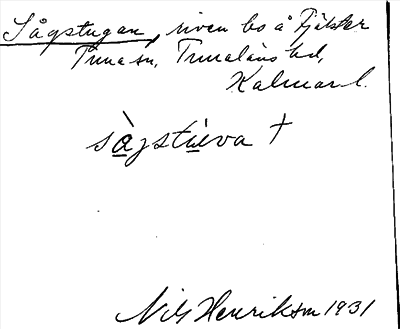 Sågstugan, riven bs å Fjälster
Tuna sn, Tunaläns hd,
Kalmar l.
sàgstùeva †
Nils Henrikson 1931